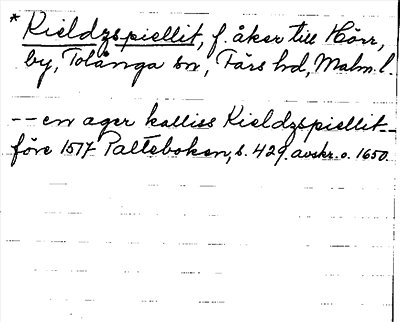 * Kieldzspiellit, f. åker till Hörr,
by, Tolånga sn, Färs hd, Malm. l.
-- en ager kalliss Kieldzspiellit --
före 1577 Palteboken, s. 429. avskr. o. 1650.